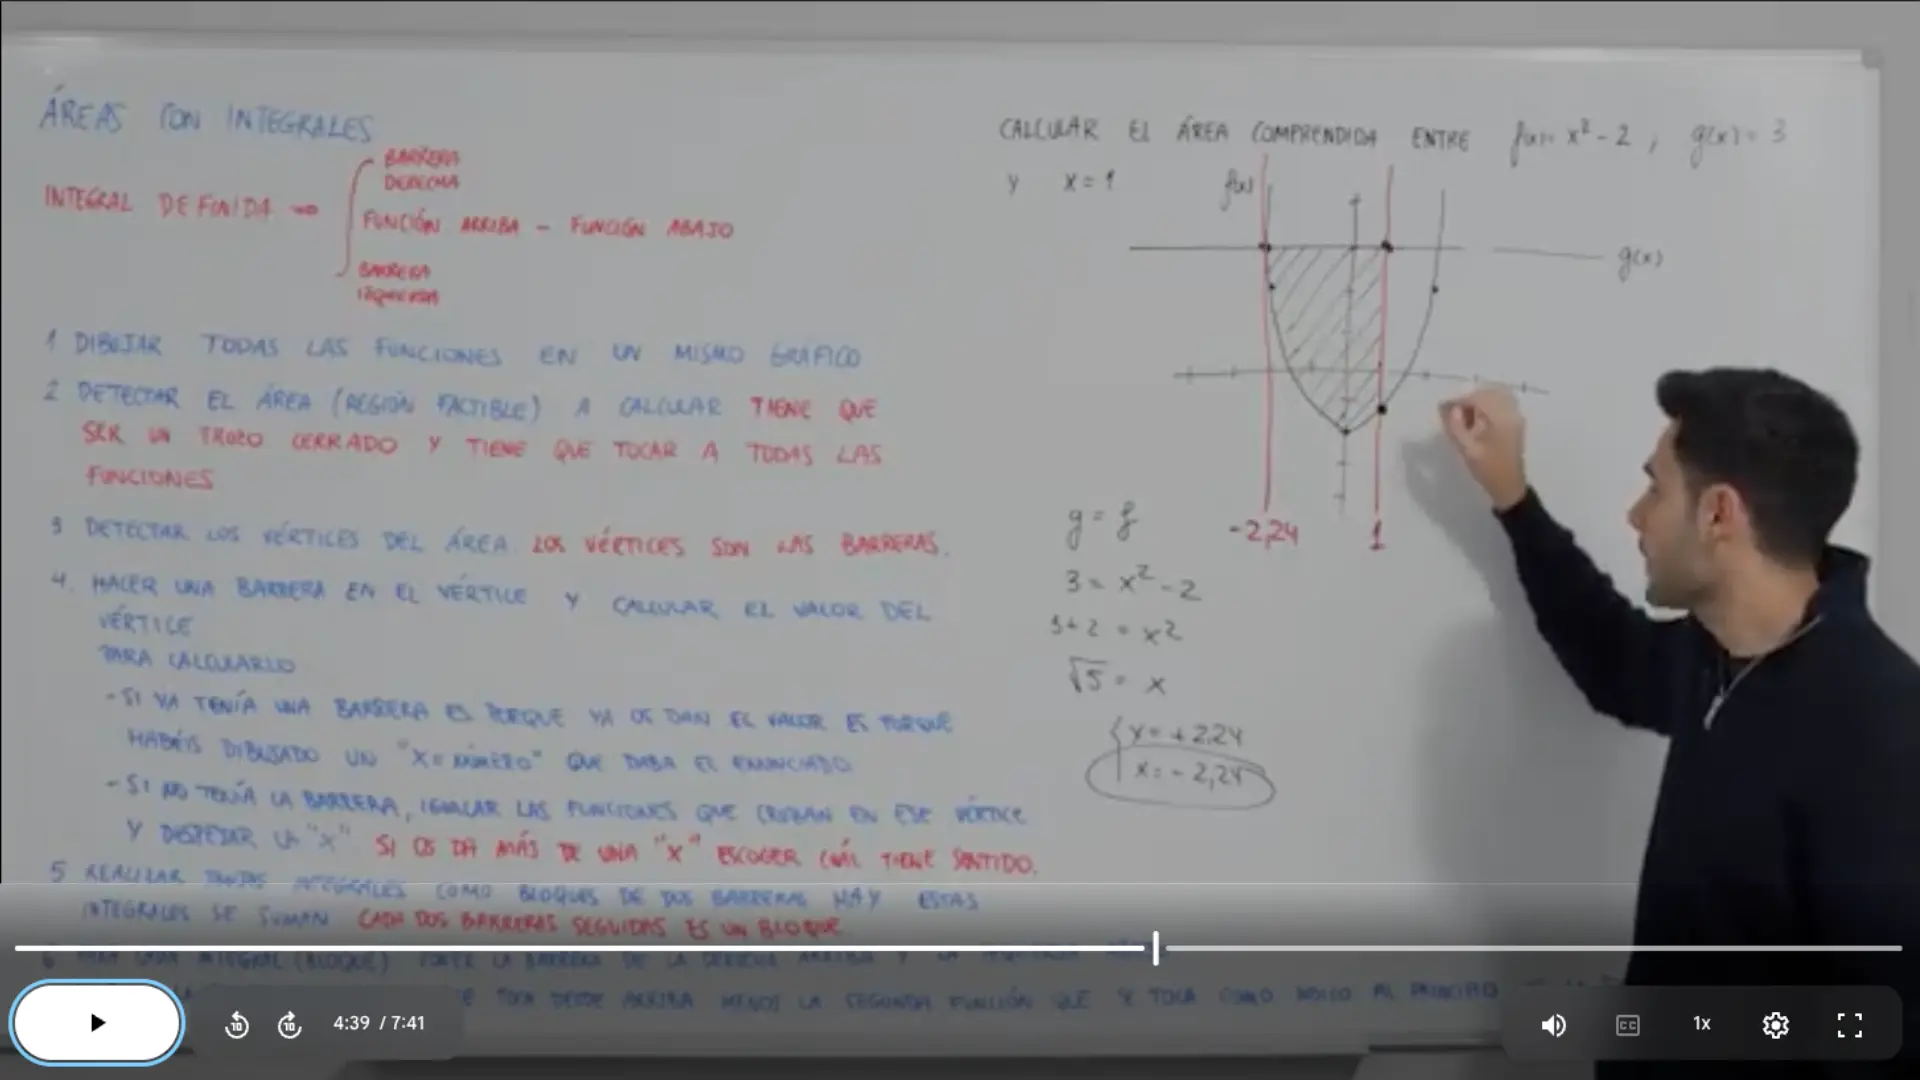 ÁREAS CON INTEGRALES
INTEGRAL DEFINIDA
BARRERA
DERECHA
FUNCIÓN ARRIBA - FUNCIÓN ABAJO
BARRERA
IZQUIERDA
1 DIBUJAR TODAS LAS FUNCIONES EN UN MISMO GRÁFICO
2 DETECTAR EL ÁREA (REGIÓN FACTIBLE) A CALCULAR TIENE QUE
SER UN TROZO CERRADO Y TIENE QUE TOCAR A TODAS LAS
FUNCIONES
3 DETECTAR LOS VÉRTICES DEL ÁREA. LOS VÉRTICES SON LAS BARRERAS.
4. HACER UNA BARRERA EN EL VÉRTICE Y CALCULAR EL VALOR DEL
VÉRTICE
PARA CALCULARLO
- SI YA TENÍA UNA BARRERA ES PORQUE YA OS DAN EL VALOR ES PORQUE
HABÉIS DIBUJADO UN "X = NÚMERO" QUE DABA EL ENUNCIADO
- SI NO TENÍA LA BARRERA, IGUALAR LAS FUNCIONES QUE CRUZAN EN ESE VÉRTICE
Y DESPEJAR LA "X" SI OS DA MÁS DE UNA "X" ESCOGER CUÁL TIENE SENTIDO.
5 REALIZAR TANTAS INTEGRALES COMO BLOQUES DE DOS BARRERAS HAY ESTAS
INTEGRALES SE SUMAN CADA DOS BARRERAS SEGUIDAS ES UN BLOQUE
6 PARA CADA INTEGRAL (BLOQUE) PONER LA BARRERA DE LA DERECHA ARRIBA Y LA IZQUIERDA
TOCA DESDE ARRIBA MENOS LA SEGUNDA FUNCIÓN QUE TOCA COMO AL PRINCIPIO
CALCULAR EL ÁREA COMPRENDIDA ENTRE f(x)= x² - 2, g(x) = 3
Y X = 1
f(x)
g(x)
-2,24 1
g = f
3 = x² - 2
3+2 = x²
√5 = x
x = +2,24
x = -2,24
10 10 4:39 / 7:41 CC 1x